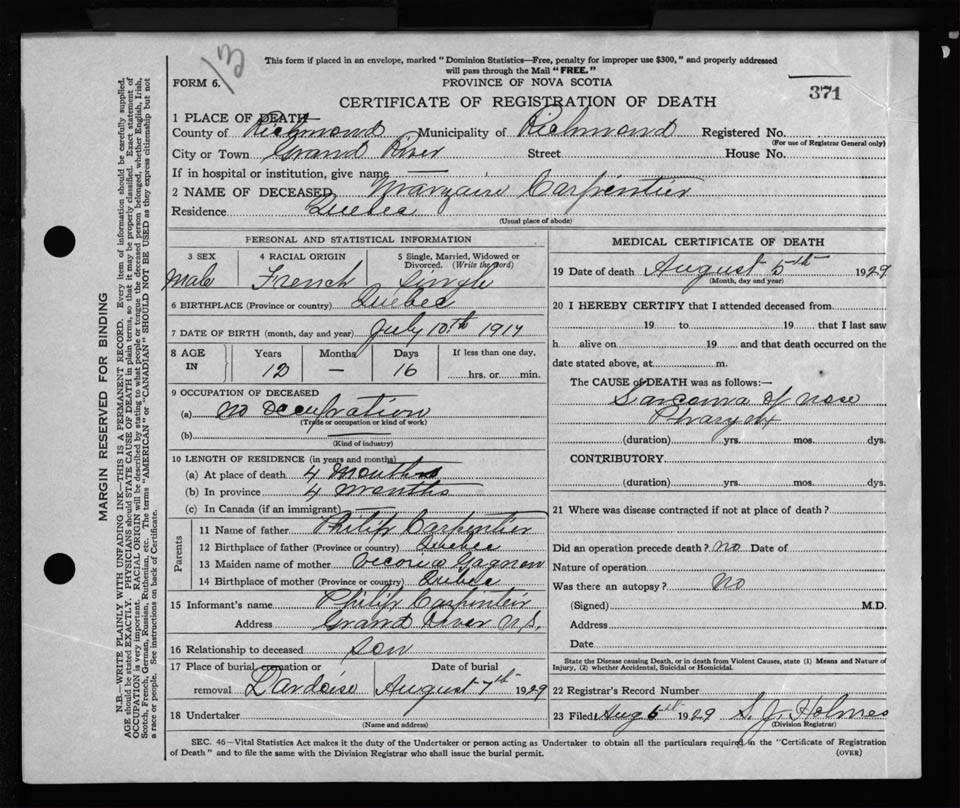 This form if placed in an envelope, marked "Dominion Statistics—Free, penalty for improper use $300," and properly addressed
will pass through the Mail "FREE."
FORM 6.
PROVINCE OF NOVA SCOTIA
371
CERTIFICATE OF REGISTRATION OF DEATH
1 PLACE OF DEATH
County of Richmond Municipality of Richmond Registered No.
(For use of Registrar General only)
City or Town Grand River Street House No.
If in hospital or institution, give name —
2 NAME OF DECEASED Carpentier
Residence Quebec
(Usual place of abode)
PERSONAL AND STATISTICAL INFORMATION
3 SEX 4 RACIAL ORIGIN 5 Single, Married, Widowed or
Divorced. (Write the word)
Male French Single
6 BIRTHPLACE (Province or country) Quebec
7 DATE OF BIRTH (month, day and year) July 10th 1917
8 AGE IN Years Months Days If less than one day,
12 — 16 hrs. or min.
9 OCCUPATION OF DECEASED
(a) No occupation
(Trade or occupation or kind of work)
(b)
(Kind of industry)
10 LENGTH OF RESIDENCE (in years and months)
(a) At place of death 4 Months
(b) In province 4 Months
(c) In Canada (if an immigrant) —
Parents
11 Name of father Philip Carpentier
12 Birthplace of father (Province or country) Quebec
13 Maiden name of mother Gagnon
14 Birthplace of mother (Province or country) Quebec
15 Informant's name Philip Carpinteir
Address Grand River N.S.
16 Relationship to deceased Son
17 Place of burial, cremation or Date of burial
removal L'ardoise August 7th 1929
18 Undertaker
(Name and address)
MEDICAL CERTIFICATE OF DEATH
19 Date of death August 5th 1929
(Month, day and year)
20 I HEREBY CERTIFY that I attended deceased from
19 to 19 that I last saw
h alive on 19 and that death occurred on the
date stated above, at m.
The CAUSE of DEATH was as follows:—
Sarcoma of nose
Pharynx
(duration) yrs. mos. dys.
CONTRIBUTORY
(duration) yrs. mos. dys.
21 Where was disease contracted if not at place of death?
Did an operation precede death? No Date of
Nature of operation
Was there an autopsy? No
(Signed) M.D.
Address
Date
State the Disease causing Death, or in death from Violent Causes, state (1) Means and Nature of
Injury, (2) whether Accidental, Suicidal or Homicidal.
22 Registrar's Record Number
23 Filed Aug 6th 1929 S. J. Holmes
(Division Registrar)
SEC. 46—Vital Statistics Act makes it the duty of the Undertaker or person acting as Undertaker to obtain all the particulars required in the "Certificate of Registration
of Death" and to file the same with the Division Registrar who shall issue the burial permit.
(OVER)
MARGIN RESERVED FOR BINDING
N.B.—WRITE PLAINLY WITH UNFADING INK—THIS IS A PERMANENT RECORD. Every item of information should be carefully supplied.
AGE should be stated EXACTLY. PHYSICIANS should STATE CAUSE OF DEATH in plain terms, so that it may be properly classified. Exact statement of
OCCUPATION is very important. RACIAL ORIGIN will be described by stating to what people or tongue the deceased person belonged, whether English, Irish,
Scotch, French, German, Russian, Ruthenian, etc. The terms "AMERICAN" or "CANADIAN" SHOULD NOT BE USED as they express citizenship but not
a race or people. See instructions on back of Certificate.